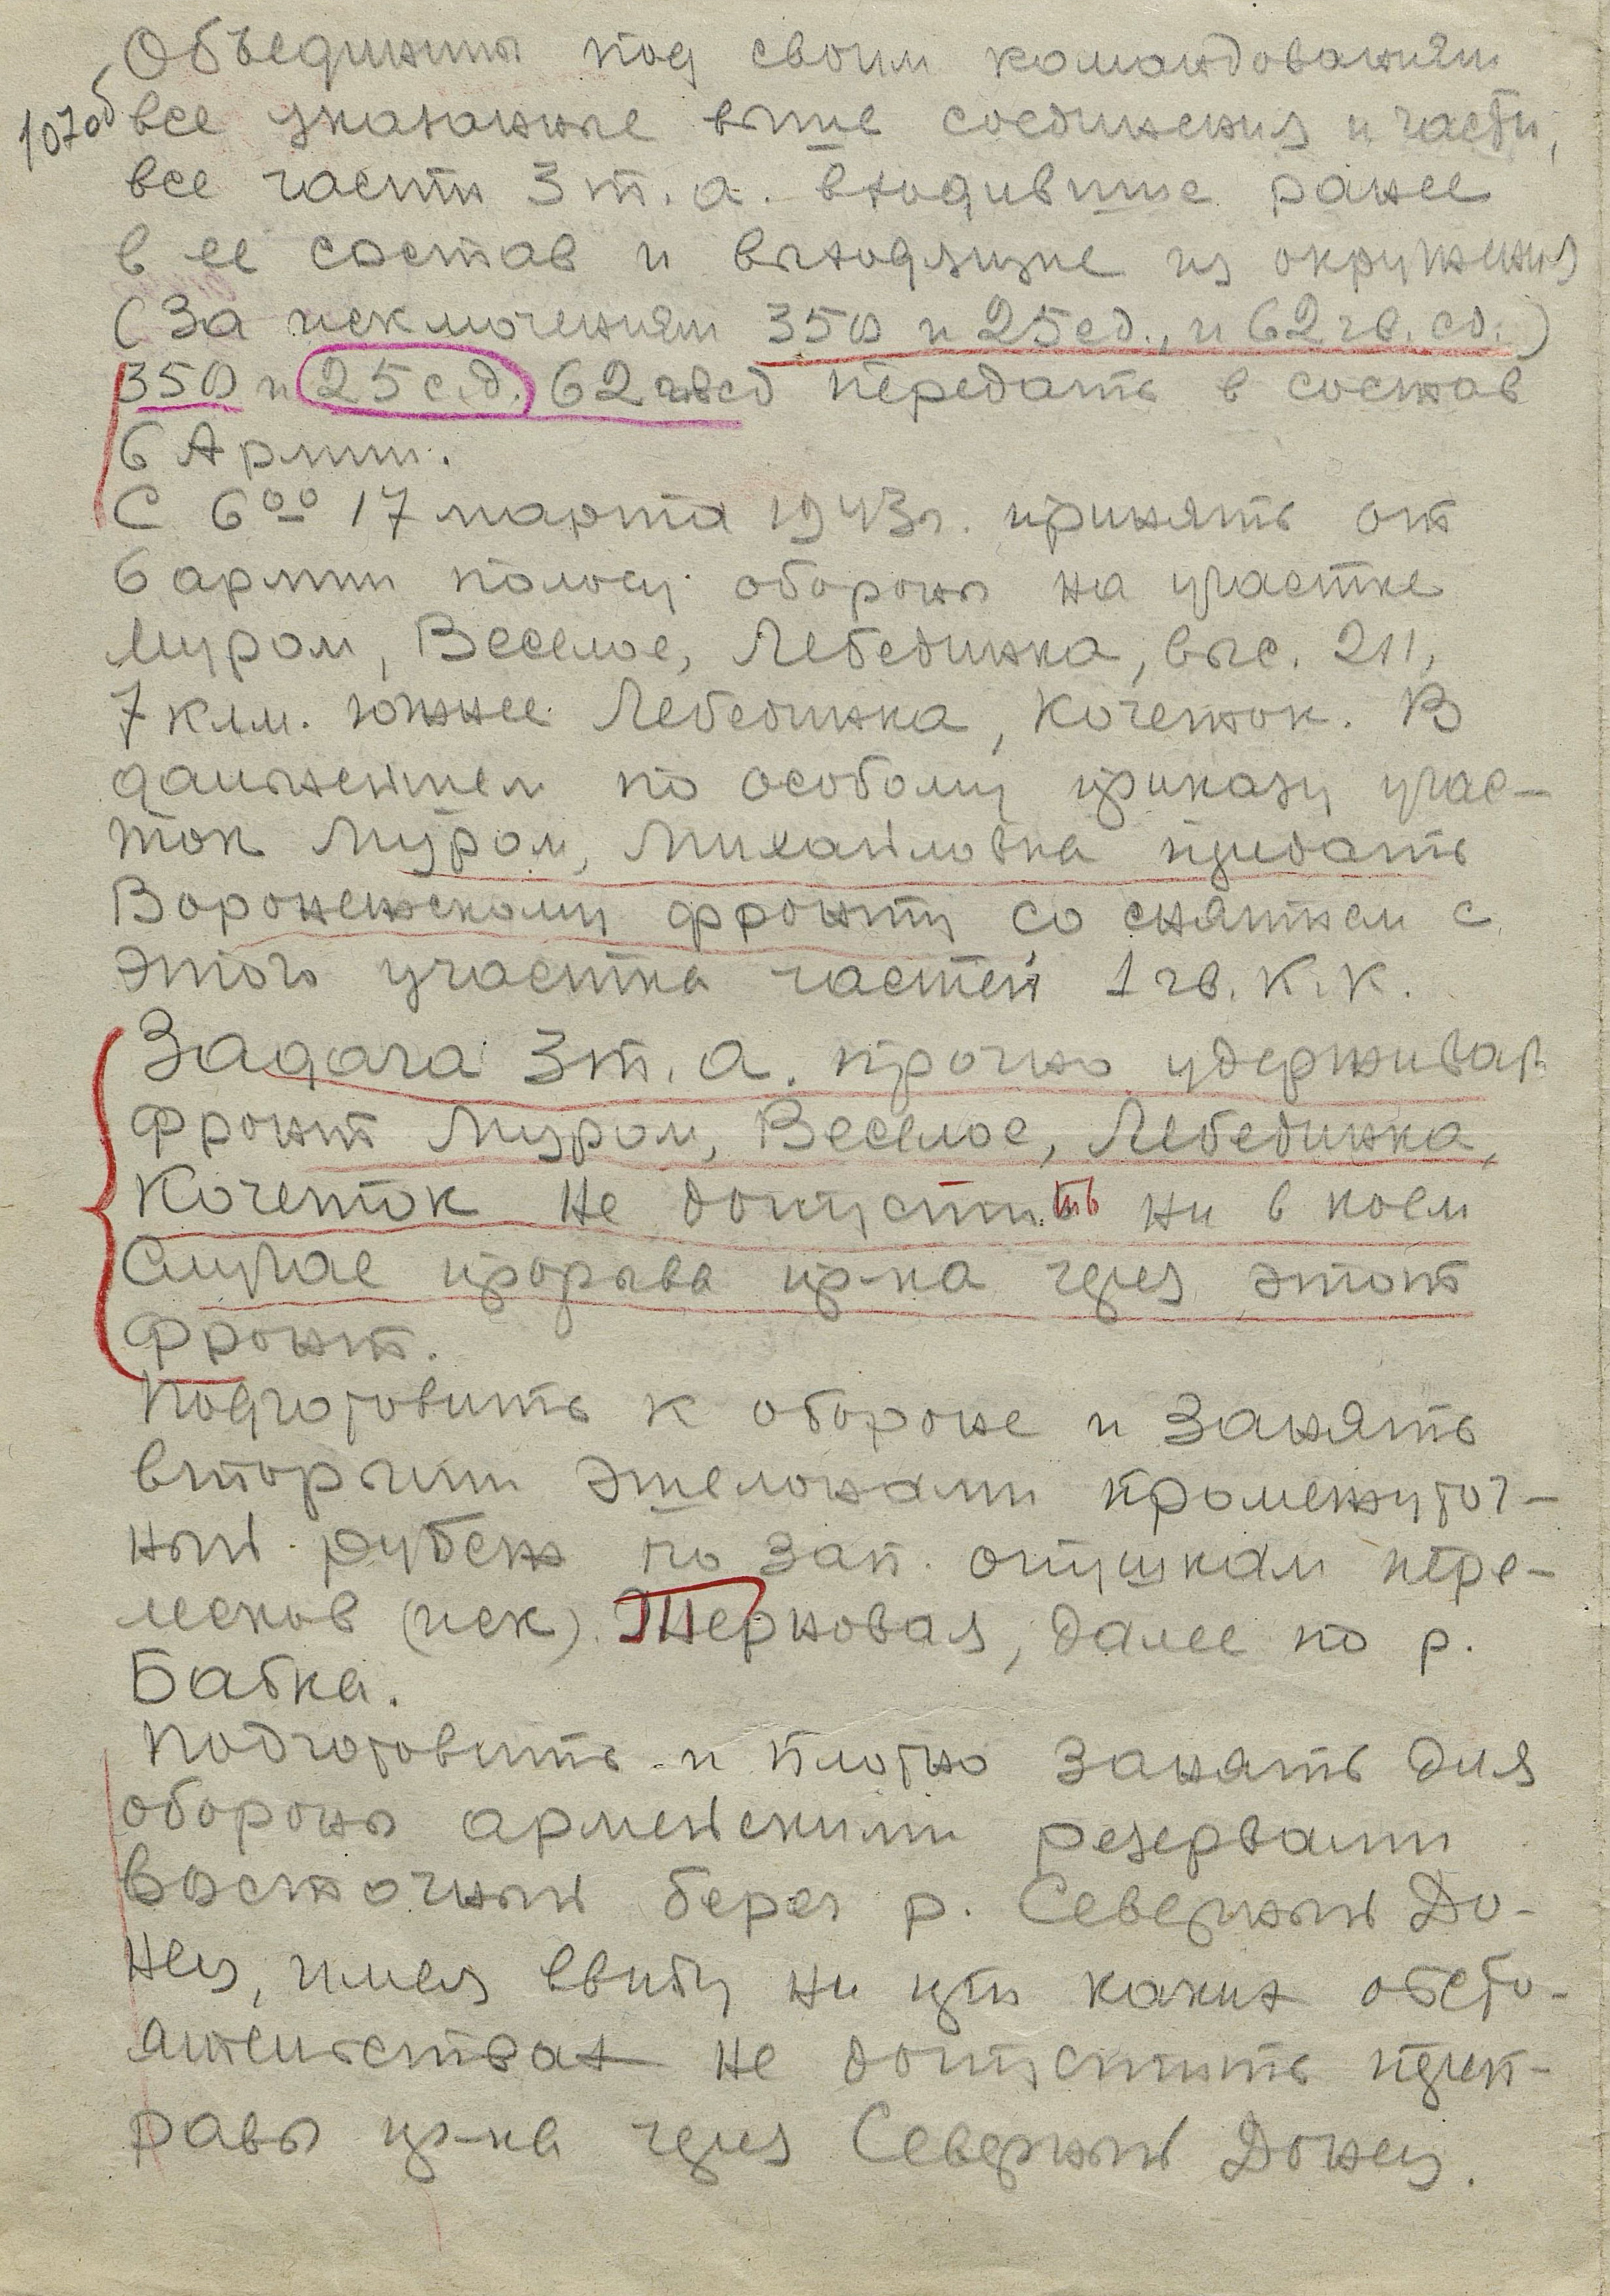 107об
Объединить под своим командованием
все указанные выше соединения и части,
все части 3 т.а. входившие ранее
в ее состав и выходящие из окружения
(За исключением 350 и 25 сд., и 62 гв. сд.)
350 и 25 с.д. 62 гв сд передать в состав
6 Армии.
С 6⁰⁰ 17 марта 1943 г. принять от
6 армии полосу обороны на участке
Муром, Веселое, Лебединка, выс. 211,
7 клм. южнее Лебединка, Кочеток. В
дальнейшем по особому приказу учас-
ток Муром, Михайловка придать
Воронежскому фронту со снятием с
этого участка частей 1 гв. К.К.
Задача 3 т.а. прочно удерживая
Фронт Муром, Веселое, Лебединка,
Кочеток не допустить ни в коем
Случае прорыва пр-ка через этот
Фронт.
Подготовить к обороне и занять
вторыми эшелонами промежуточ-
ный рубеж по зап. опушкам пере-
лесков (иск). Терновая, далее по р.
Бабка.
Подготовить и плотно занять для
обороны армейскими резервами
восточный берег р. Северный До-
нец, имея ввиду ни при каких обсто-
ятельствах не допустить переп-
равы пр-ка через Северный Донец.